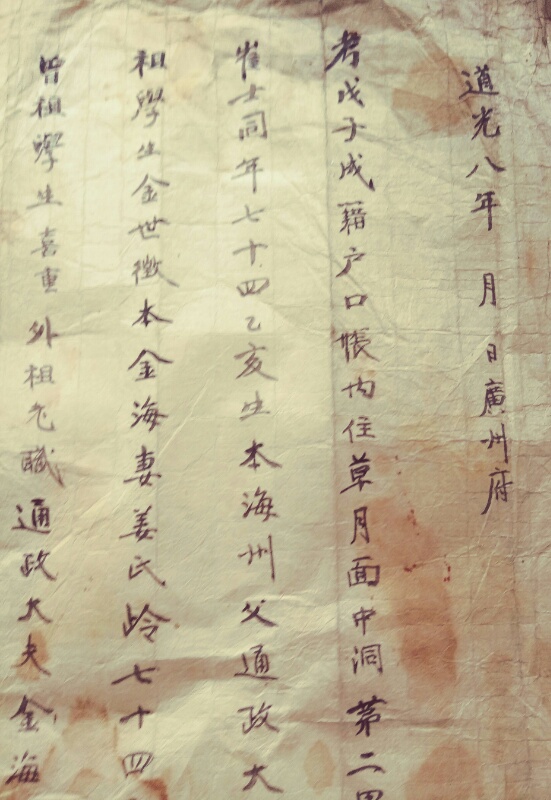 道光八年 月 日廣州府
考戊子成籍户口帳內住草月面中洞第二
崔士同年七十四乙亥生本海州父通政大
祖學生金世徵本金海妻姜氏岭七十四
曾祖學生喜重外祖老職通政大夫金海